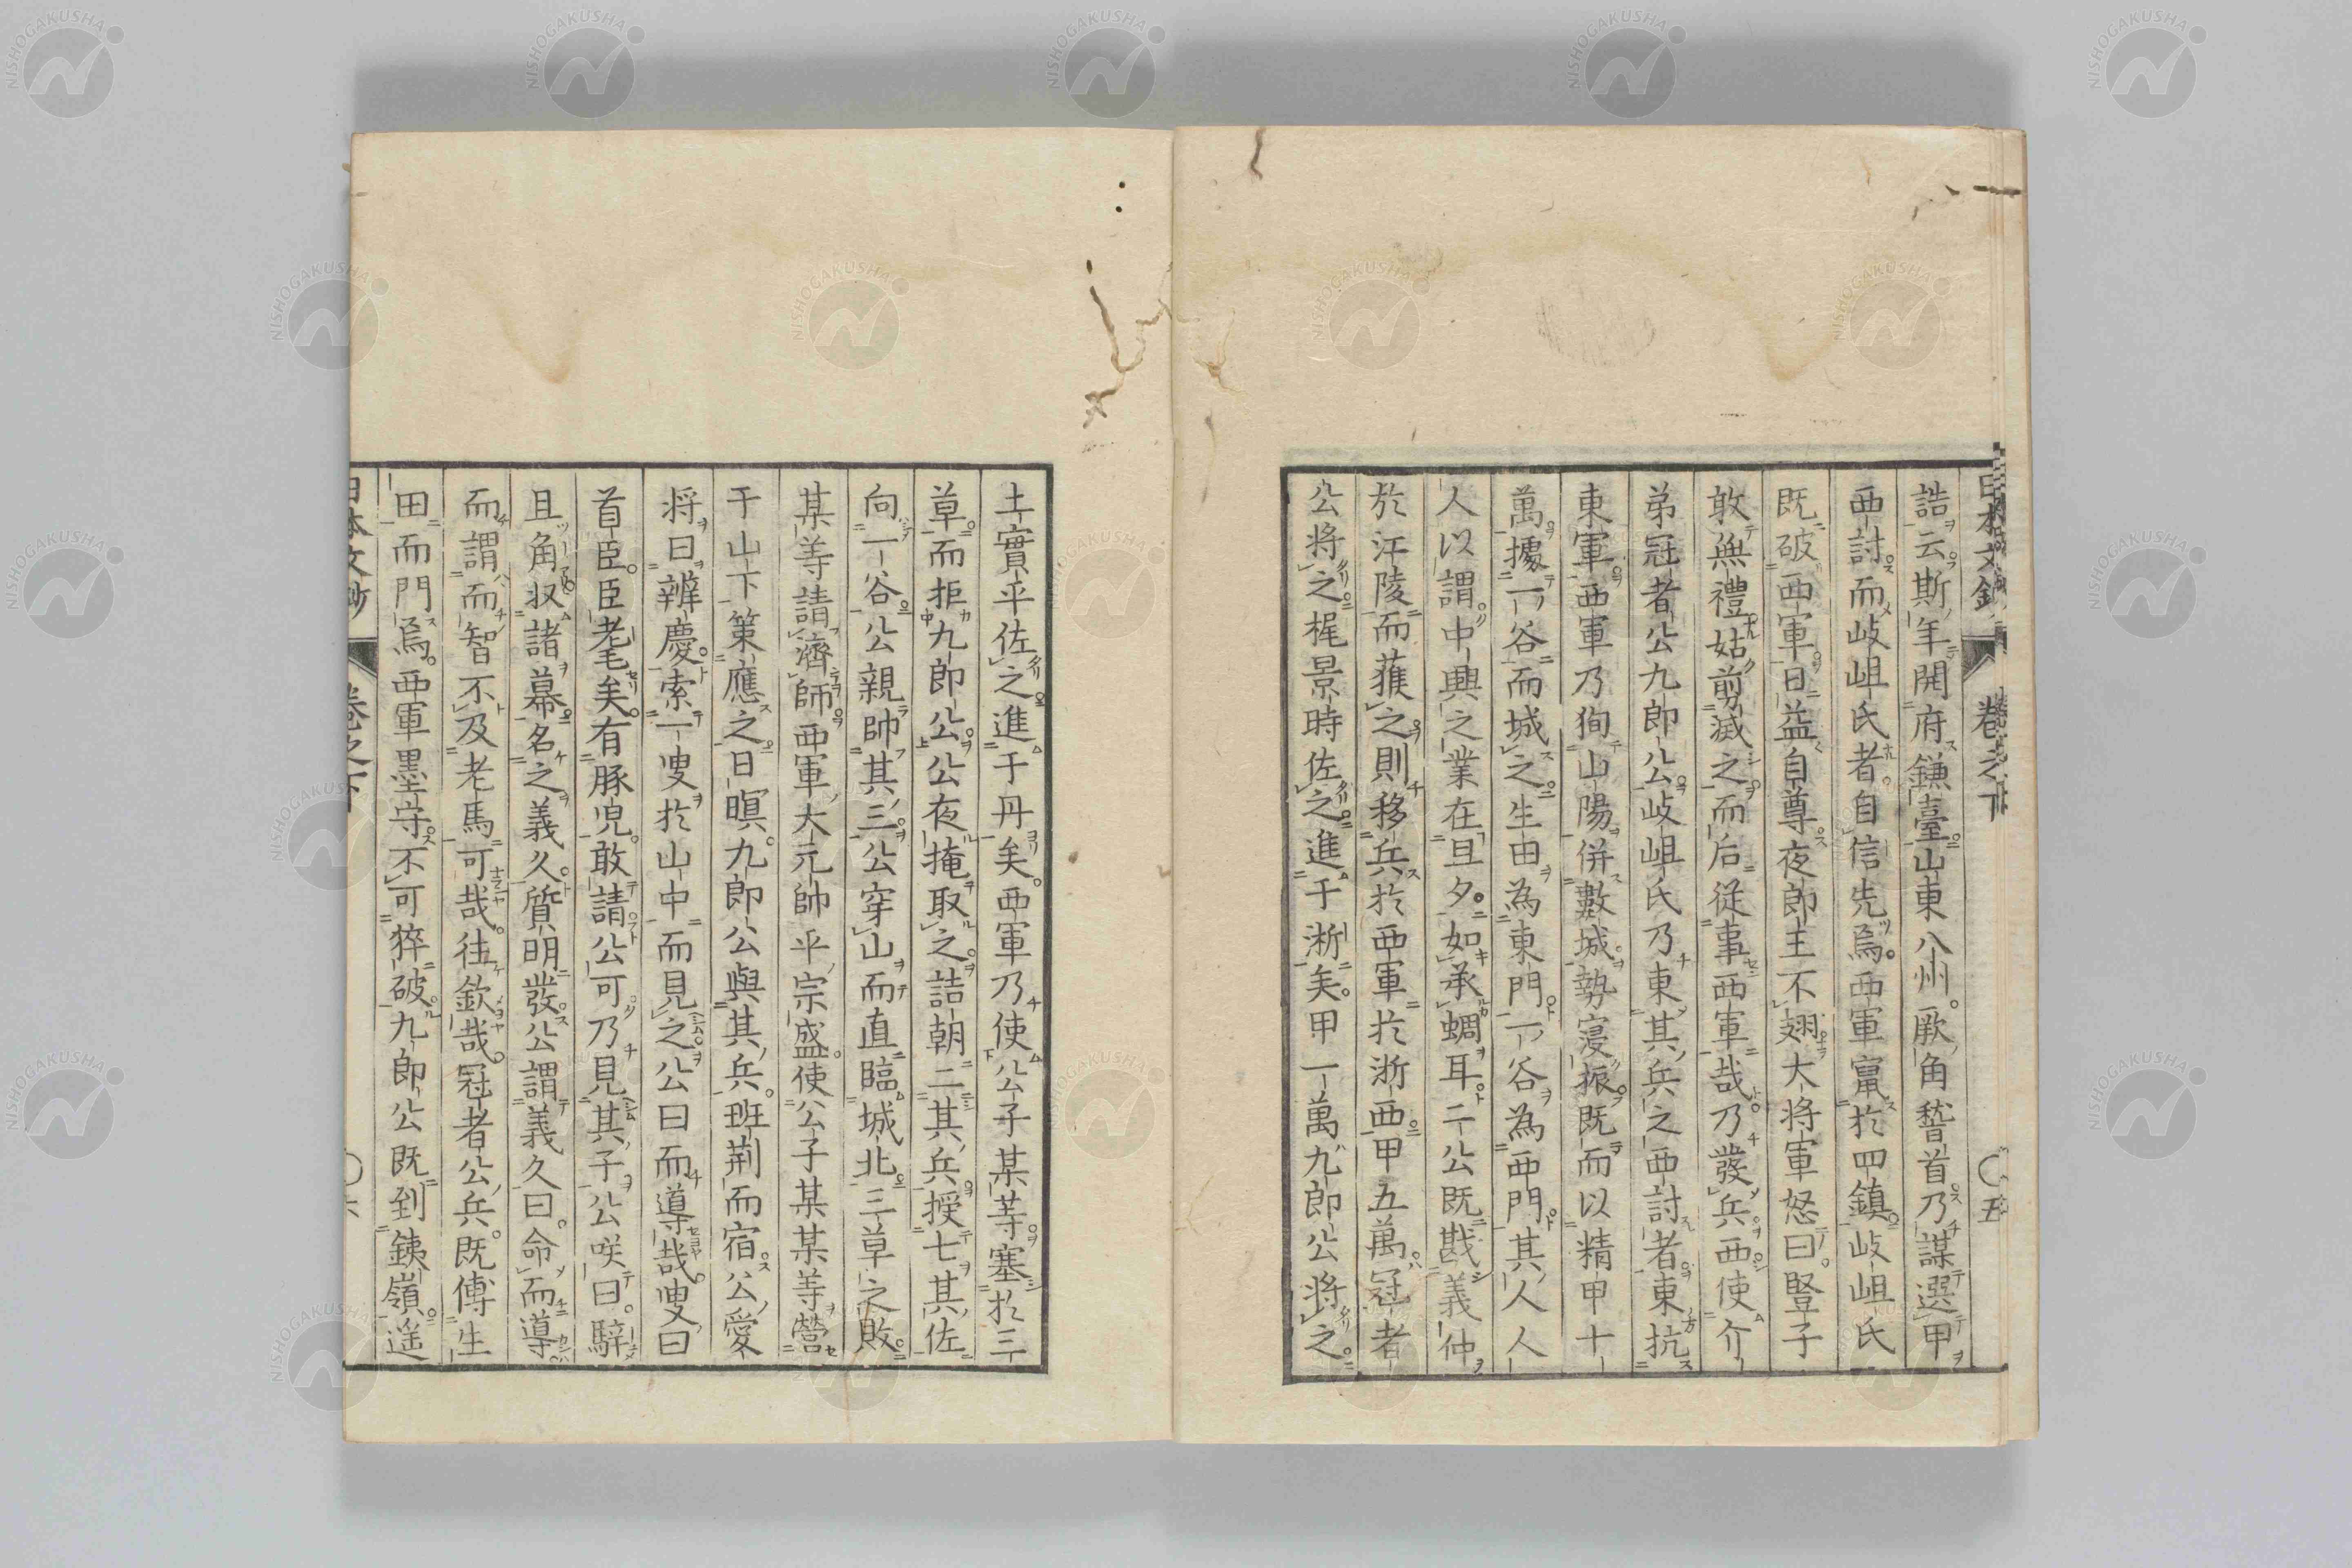 日本文鈔 卷之下 〇五
誥云斯年開府鎌臺山東八州厥角稽首乃謀選甲
西討而岐岨氏者自信先焉西軍竄於四鎮岐岨氏
既破西軍日益自尊夜郎主不翅大將軍怒曰豎子
敢無禮姑剪滅之而后從事西軍哉乃發兵西使介
弟冠者公九郎公岐岨氏乃東其兵之西討者東抗
東軍西軍乃徇山陽併數城勢寖振既而以精甲十
萬據一谷而城之生田為東門一谷為西門其人人
人以謂中興之業在旦夕如承蜩耳二公既戡義仲
於江陵而蒦之則移兵於西軍於浙西甲五萬冠者
公將之梶景時佐之進于淅矣甲一萬九郎公將之
土實平佐之進于丹矣西軍乃使公子某等塞於三
草而拒九郎公公夜掩取之詰朝二其兵授七其佐
向一谷公親帥其三公穿山而直臨城北三草之敗
某等請濟師西軍大元帥平宗盛使公子某某等營
于山下策應之日暝九郎公與其兵班荆而宿公愛
將曰辨慶索一叟於山中而見之公曰而導哉叟曰
首臣臣耄矣有豚兒敢請公可乃見其子公咲曰騂
且角収諸幕名之義久質明發公謂義久曰命而導
而謂而智不及老馬可哉往欽哉冠者公兵既傅生
田而門焉西軍墨守不可猝破九郎公既到鐵嶺遥
日本文鈔 卷之下 〇六